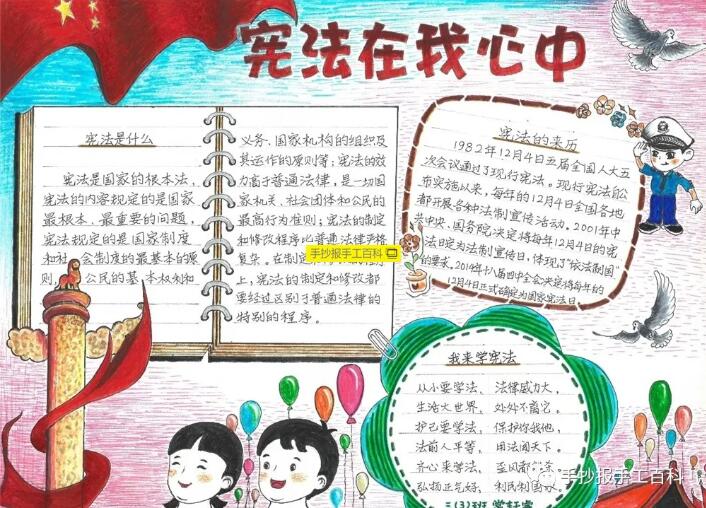 宪法在我心中
宪法是什么
宪法是国家的根本法,
宪法的内容规定的是国家
最根本、最重要的问题,
宪法规定的是国家制度
和社会制度的最基本的原
则,公民的基本权利和
义务、国家机构的组织及
其运作的原则等;宪法的效
力高于普通法律,是一切国
家机关、社会团体和公民的
最高行为准则;宪法的制定
和修改程序比普通法律严格
复杂。在制定
上,宪法的制定和修改都
要经过区别于普通法律的
特别的程序。
手抄报手工百科
宪法的来历
1982年12月4日五届全国人大五
次会议通过了现行宪法。现行宪法自公
布实施以来,每年的12月4日全国各地
都开展各种法制宣传活动。2001年中
共中央、国务院决定将每年12月4日的宪
法日定为法制宣传日,体现了“依法制国”
的要求。2014年十八届四中全会决定将每年的
12月4日正式确定为国家宪法日。
我来学宪法
从小要学法, 法律威力大,
生活大世界, 处处不离它。
护己要学法, 保护你我他,
法前人平等, 用法闯天下。
齐心来学法,
弘扬正气好, 利民利国家
三(3)班
手抄报手工百科